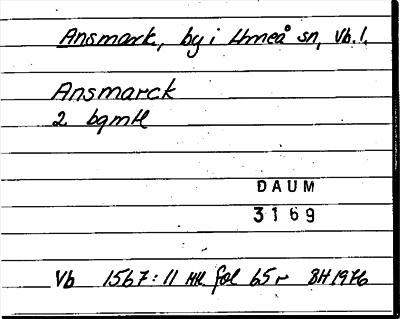 Ansmark, by i Umeå sn, Vb. l.
Ansmarck
2 bqmH
DAUM
3169
Vb 1567: 11 HH fol 65 r BH 1976